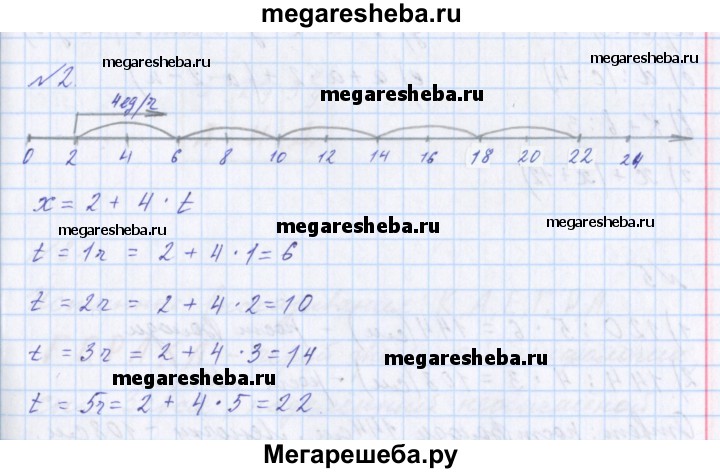 megaresheba.ru
№2.
megaresheba.ru
megaresheba.ru
4 ед/ч
megaresheba.ru
0 2 4 6 8 10 12 14 16 18 20 22 24
x = 2 + 4 · t
megaresheba.ru
megaresheba.ru
megaresheba.ru
t = 1ч = 2 + 4 · 1 = 6
t = 2ч = 2 + 4 · 2 = 10
t = 3ч = 2 + 4 · 3 = 14
megaresheba.ru
megaresheba.ru
t = 5ч = 2 + 4 · 5 = 22.
Мегарешеба.ру